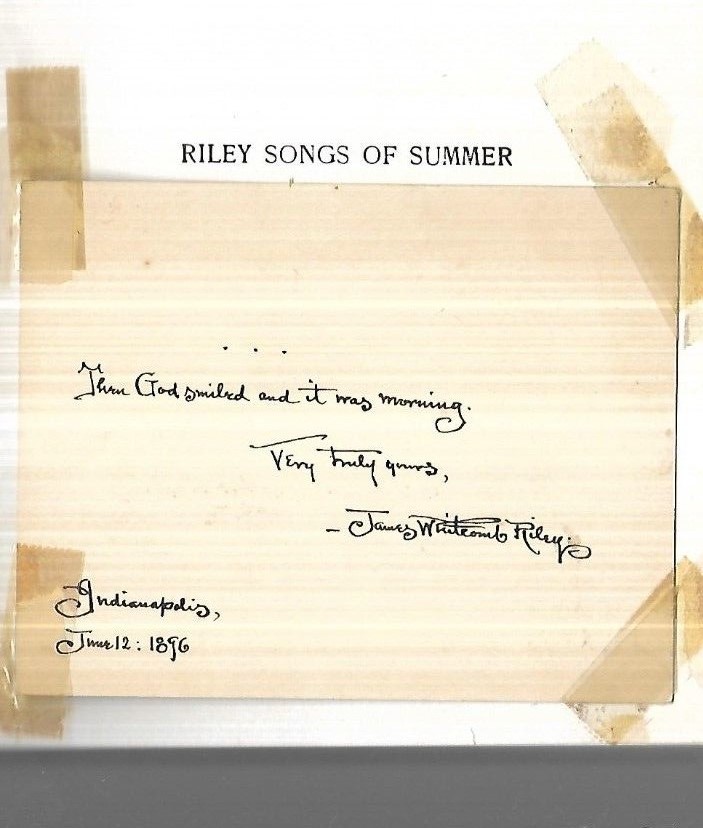 RILEY SONGS OF SUMMER
. . .
Then God smiled and it was morning.
Very truly yours,
– James Whitcomb Riley.
Indianapolis,
June 12 : 1896